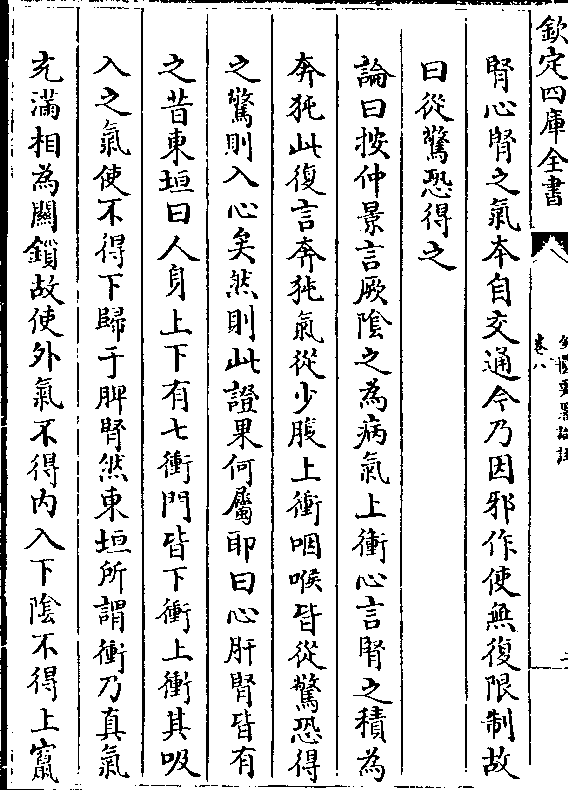 欽定四庫全書
卷八
腎心腎之氣本自交通今乃因邪作使無復限制故
曰從驚恐得之
論曰按仲景言厥陰之為病氣上衝心言腎之積為
奔㹠此復言奔㹠氣從少腹上衝咽喉皆從驚恐得
之驚則入心矣然則此證果何屬耶曰心肝腎皆有
之昔東垣曰人身上下有七衝門皆下衝上衝其吸
入之氣使不得下歸于脾腎然東垣所謂衝乃真氣
充滿相為關鎖故使外氣不得内入下陰不得上竄